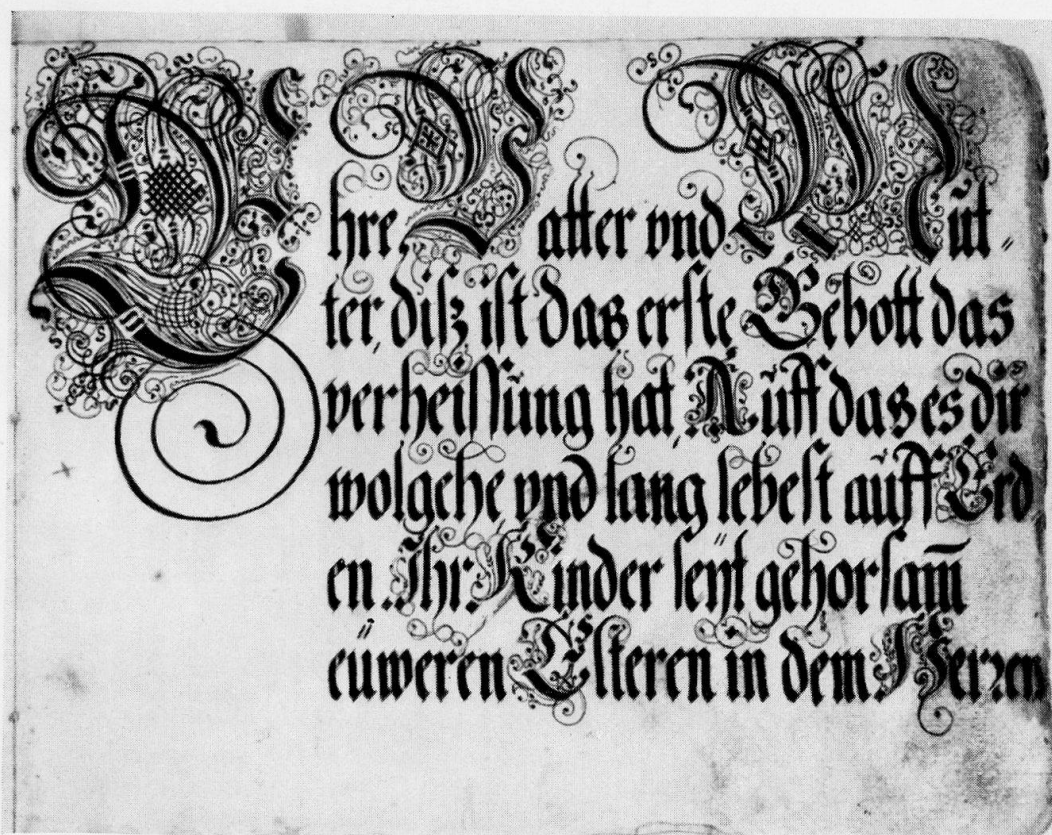 Ehre Vatter vnd Můt⸗
ter, disz ist das erste Gebott das
verheissůng hat, Aůff das es dir
wolgehe vnd lang lebest aůff Erd
en. Ihr Kinder seÿt gehorsam̄
eüweren Elteren in dem Herren